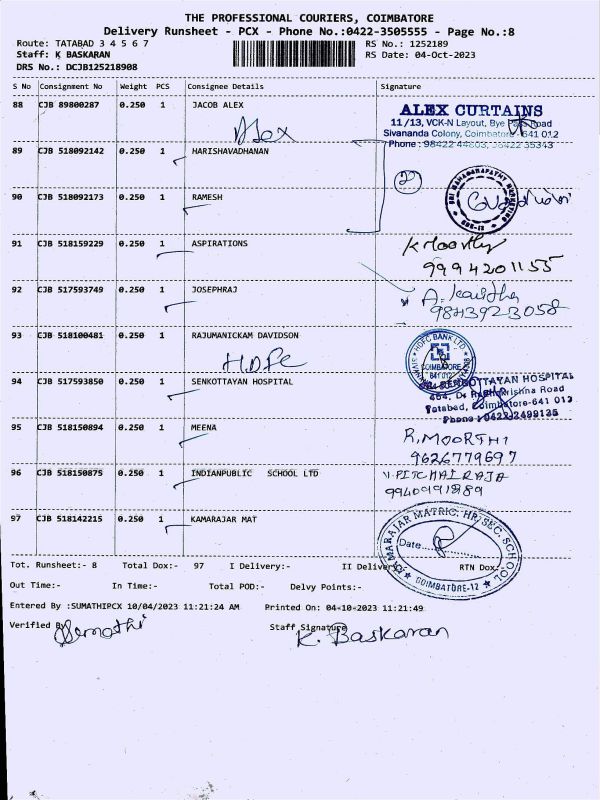 THE PROFESSIONAL COURIERS, COIMBATORE
Delivery Runsheet - PCX - Phone No.:0422-3505555 - Page No.:8
Route: TATABAD 3 4 5 6 7 RS No.: 1252189
Staff: K BASKARAN RS Date: 04-Oct-2023
DRS No.: DCJB125218908
S No Consignment No Weight PCS Consignee Details Signature
88 CJB 89800287 0.250 1 JACOB ALEX
Alex
ALEX CURTAINS
11/13, VCK-N Layout, Bye Pass Road
Sivananda Colony, Coimbatore- 641 012
Phone : 98422 44603, 98422 35343
89 CJB 518092142 0.250 1 HARISHAVADHANAN
90 CJB 518092173 0.250 1 RAMESH
91 CJB 518159229 0.250 1 ASPIRATIONS
K Moorthy
9994201155
92 CJB 517593749 0.250 1 JOSEPHRAJ
A. Kavitha
9843923058
93 CJB 518100481 0.250 1 RAJUMANICKAM DAVIDSON
H.D.F.C
HDFC BANK LTD
COIMBATORE
641 012
94 CJB 517593850 0.250 1 SENKOTTAYAN HOSPITAL
SENGOTTAYAN HOSPITAL
Krishna Road
Tatabad, Coimbatore-641 012
Phone : 0422-2499135
95 CJB 518150894 0.250 1 MEENA
R, MOORTHI
9626779697
96 CJB 518150875 0.250 1 INDIANPUBLIC SCHOOL LTD
V. PITCHAI RAJA
9940991889
97 CJB 518142215 0.250 1 KAMARAJAR MAT
KAMARAJAR MATRIC. HR. SEC. SCHOOL
Date
COIMBATORE-12
Tot. Runsheet:- 8 Total Dox:- 97 I Delivery:- II Delivery:- RTN Dox:-
Out Time:- In Time:- Total POD:- Delvy Points:-
Entered By :SUMATHIPCX 10/04/2023 11:21:24 AM Printed On: 04-10-2023 11:21:49
Verified By Staff Signature
K. Baskaran